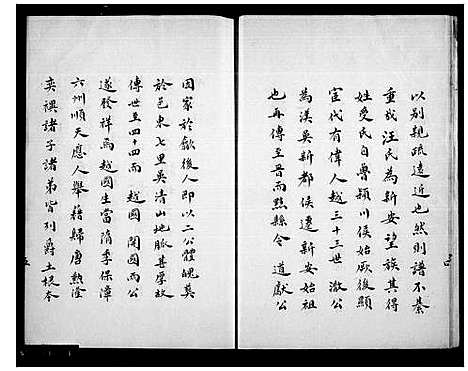 以别親疏遠近也然則譜不綦
重哉汪民為新安望族其得
姓受氏自魯潁川侯始厥後顯
宦代有偉人越三十三世 澈公
為漢吳新都侯遷新安始祖
也再傳至晉而黟縣令 道獻公
因家於歙後人即以二公體魄奠
於邑東七里吳清山地脈尊厚故
傳世至四十四而 越國 開國而公
遂發祥焉越國生當隋季保漳
六州順天應人舉籍歸唐勲隆
奕禩諸子諸弟皆列爵土根本